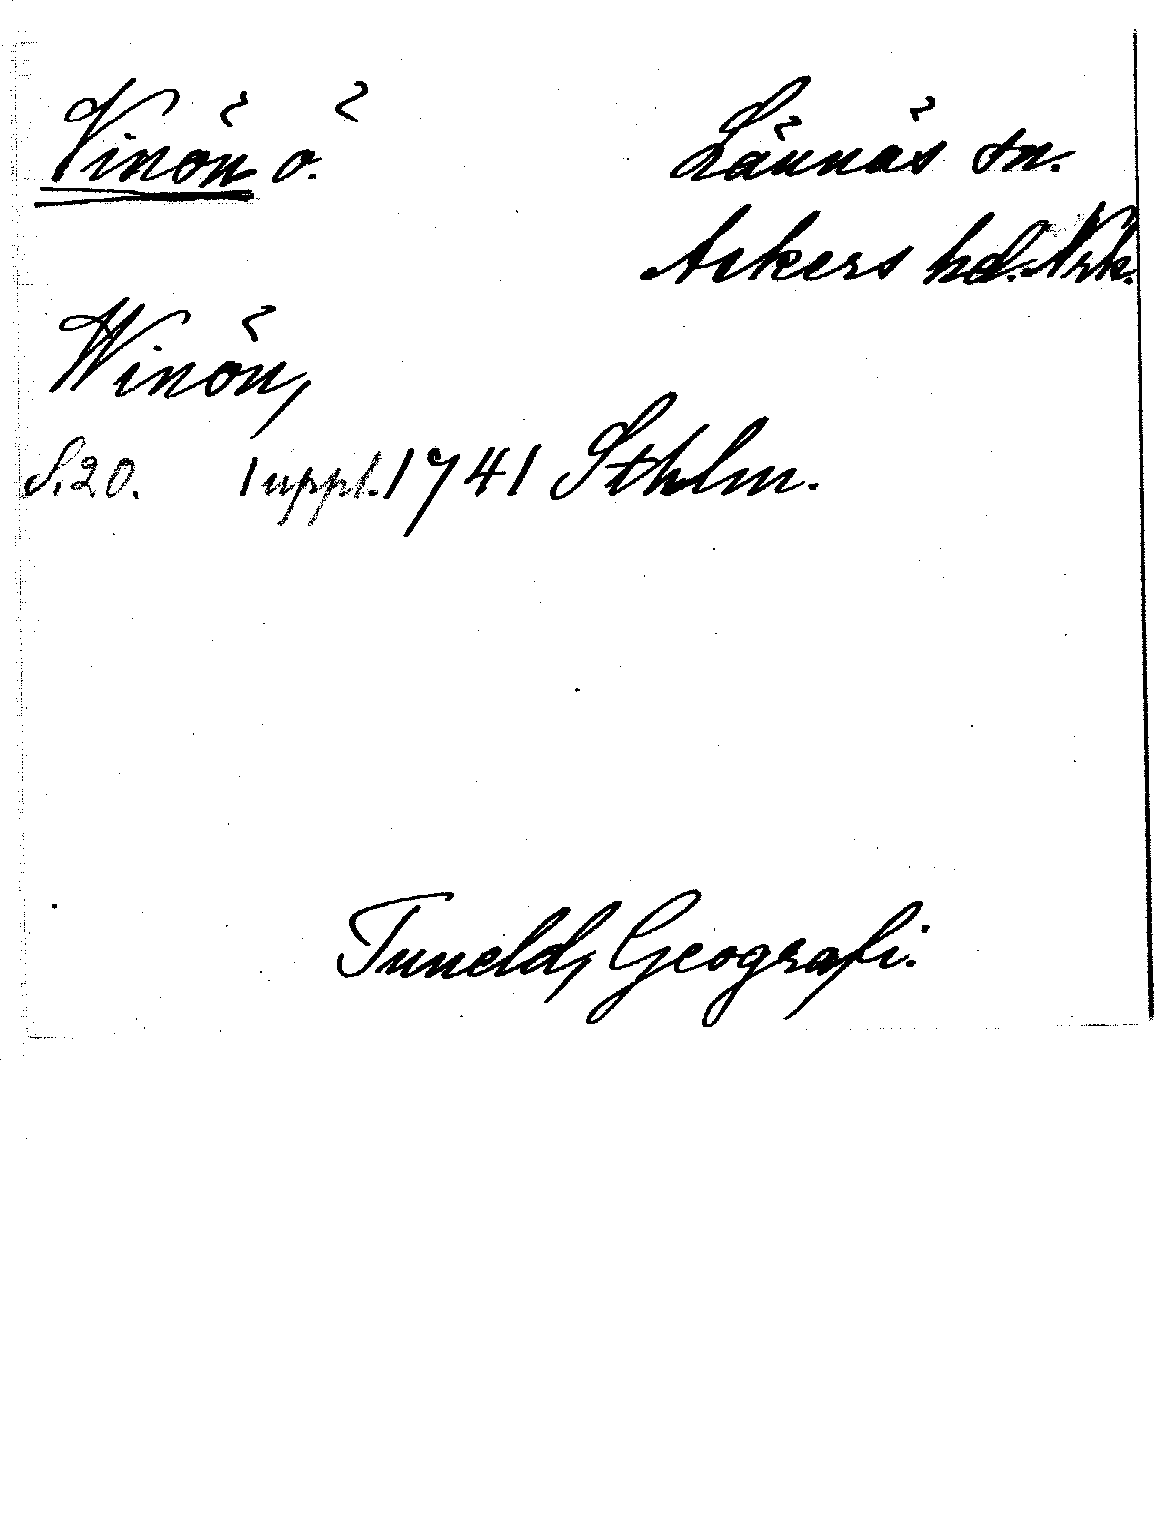 Vinön ö.
Lännäs sn.
Askers hd. Nrk.
Winön,
S. 20. 1 uppl. 1741 Sthlm.
Tuneld, Geografi.